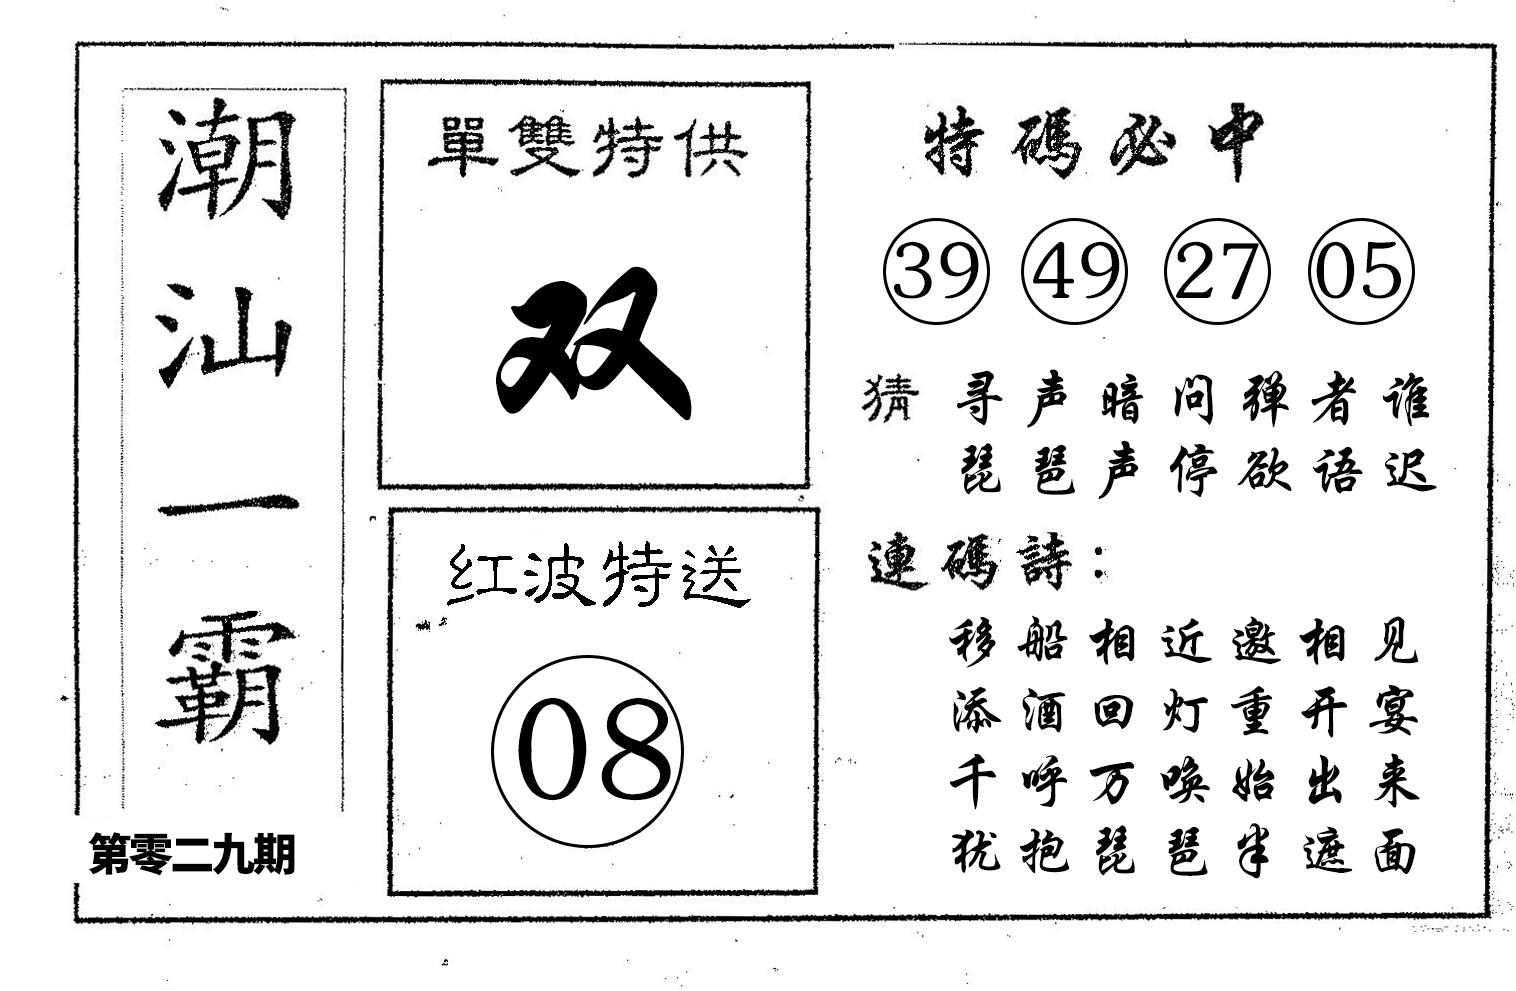 潮汕一霸
第零二九期
單雙特供
双
红波特送
08
特碼必中
39 49 27 05
猜 寻声暗问弹者谁
琵琶声停欲语迟
連碼詩：
移船相近邀相见
添酒回灯重开宴
千呼万唤始出来
犹抱琵琶半遮面